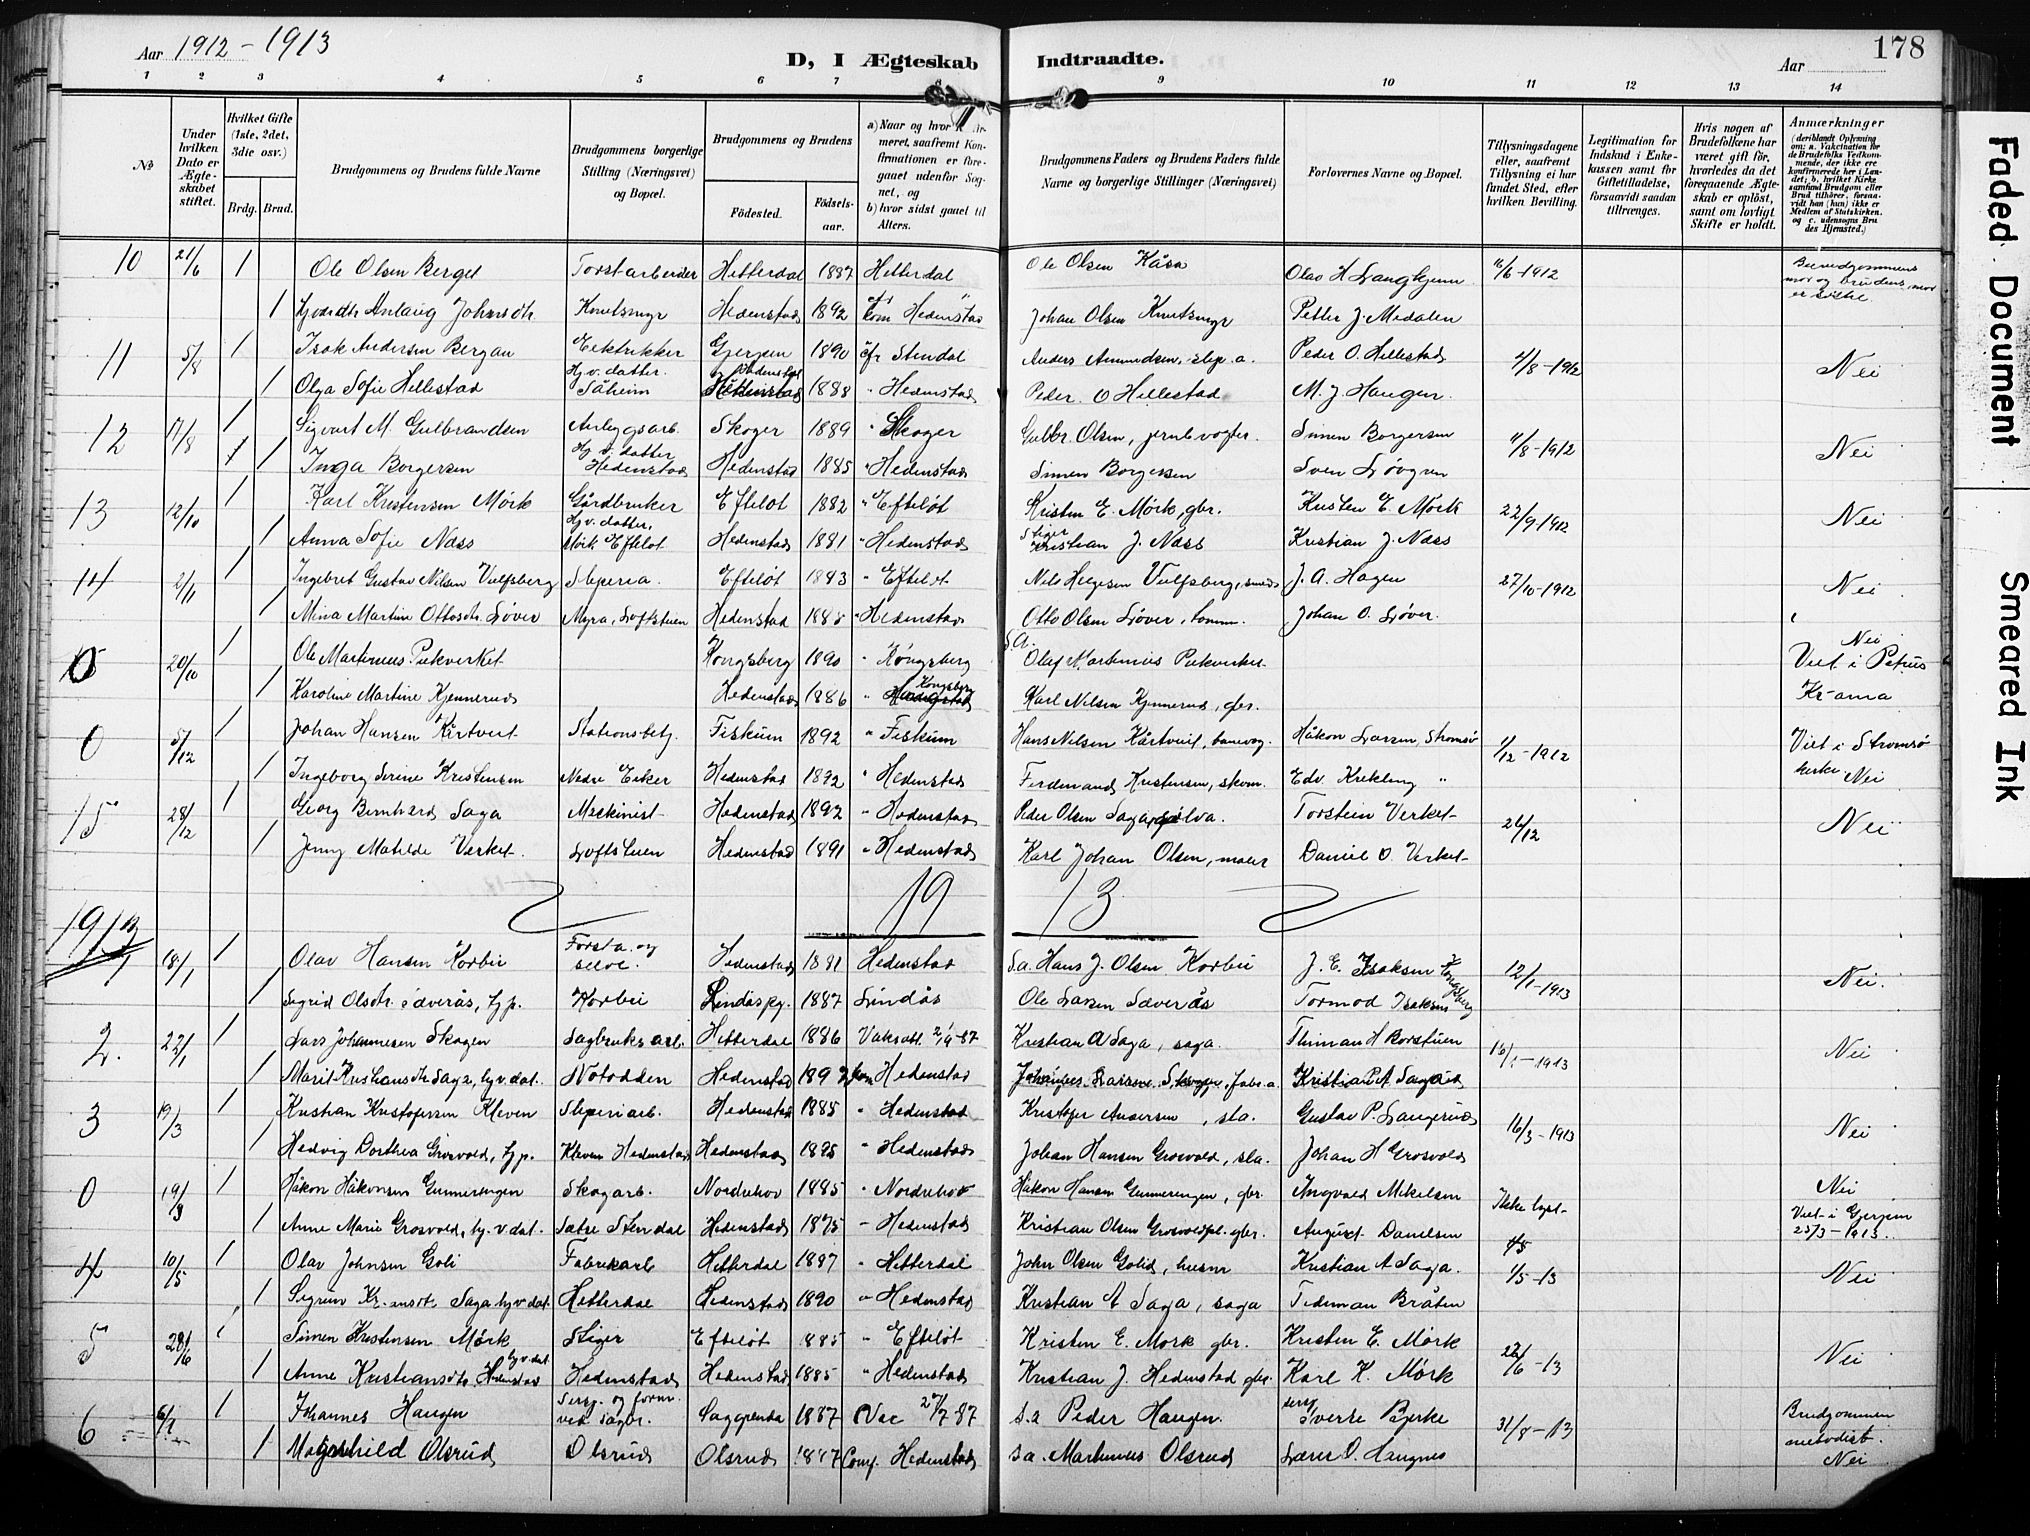 Aar 1912 - 1913
D, I Ægteskab Indtraadte.
Aar 178
1 2 3 4 5 6 7 8 9 10 11 12 13 14
No
Under hvilken Dato er Ægteskabet stiftet.
Hvilket Gifte (1ste, 2det, 3die osv.)
Brdg. Brud.
Brudgommens og Brudens fulde Navne
Brudgommens borgerlige Stilling (Næringsvei) og Bopæl.
Brudgommens og Brudens
Fødested. Fødselsaar.
a) Naar og hvor
meret, saafremt Konfirmationen er foregaaet udenfor Sognet, og
b) hvor sidst gaaet til Alters.
Brudgommens Faders og Brudens Faders fulde Navne og borgerlige Stillinger (Næringsvei)
Forlovernes Navne og Bopæl.
Tillysningsdagene eller, saafremt Tillysning ei har fundet Sted, efter hvilken Bevilling.
Legitimation for Indskud i Enkekassen samt for Giftetilladelse, forsaavidt saadan tiltrænges.
Hvis nogen af Brudefolkene har været gift før, hvorledes da det foregaaende Ægteskab er opløst, samt om lovligt Skifte er holdt.
Anmærkninger
(deriblandt Oplysning om: a. Vakcination for de Brudefolks Vedkommende, der ikke ere konfirmerede her i Landet; b. hvilket Kirkesamfund Brudgom eller Brud tilhører, forsaavidt han (hun) ikke er Medlem af Statskirken. og c. udensogns Brudes Hjemsted.)
10 21/6 1 Ole Olsen Berget Hitterdal 1887 Hitterdal Ole Olsen Kåsa 16/6-1912 Brudgommens mor og brudens mor er søstre
1 Anlaug Johnsdtr. Knutsmyr Hedenstad 1892 Hedenstad Johan Olsen Knutsmyr Petter J. Medalen
11 5/8 1 Isak Andersen Bergan Elektrikker Gjerpen 1890 Stendal Anders Amundsen, slip. a. Peder O. Hellestad 4/8-1912 Nei
1 Olga Sofie Hellestad Hj. v. datter. Såheim Hedenstad 1888 " Hedenstad Peder O Hellestad M. J. Haugen.
12 17/8 1 Sigvart M. Gulbrandsen Anlegsarb. Skoger 1889 " Skoger Gulbr. Olsen, jernb. vogter. Simen Borgersen 11/8-1912 Nei
1 Inga Borgersen Hj. v. datter Hedenstad Hedenstad 1885 " Hedenstad Simen Borgersen Sven Løvgren
13 12/10 1 Karl Kristensen Mørk Gårdbruker Efteløt 1882 " Efteløt Kristen E. Mørk, gbr. Kristen E. Mørk 22/9-1912 Nei
1 Anna Sofie Næss Hj. v. datter, Mørk Efteløt Hedenstad 1881 " Hedenstad Stiger Kristian J. Næss Kristian J. Næss
14 2/11 1 Ingebret Gustav Nilsen Vulfsberg Sliperia. Efteløt 1883 " Efteløt Nils Helgesen Vulfsberg, smed J. A. Hagen 27/10-1912 Nei
1 Mina Martine Ottosdtr. Løver Myra, Loftstuen Hedenstad 1885 " Hedenstad Otto Olsen Løver, tomm. Johan O. Løver.
0 20/10 1 Ole Martinius Pukverket Kongsberg 1890 " Kongsberg S.a. Olaf Martinius Pukverket Nei Viet i Petrus Kr-ania
1 Karoline Martine Kjennerud Hedenstad 1886 " Kongsberg Karl Nilsen Kjennerud, gbr.
0 5/12 1 Johan Hansen Kårtveit Stationsbetj. Fiskum 1892 " Fiskum Hans Nilsen Kårtveit, banevog. Håkon Larsen, Strømsø 1/12-1912 Viet i Strømsø kirke Nei
1 Ingeborg Serine Kristensen Nedre Eiker Hedenstad 1892 " Hedenstad Ferdinand Kristensen, skom. Edv. Krekling "
15 28/12 1 Georg Bernhard Saga Maskinist Hedenstad 1892 " Hedenstad Peder Olsen Saga, Torstein Verket 26/12 Nei
1 Jenny Matilde Verket. Loftstuen Hedenstad 1891 " Hedenstad Karl Johan Olsen, maler Daniel O. Verket
19 13
1913
1 18/1 1 Olav Hansen Korbu Forsta. og Hedenstad 1881 Hedenstad S.a. Hans J. Olsen Korbu J. E. Isaksen Kongsberg 12/1-1913 Nei.
1 Sigrid Olsdtr. Sæverås, hj.p. Korbu Lindås pg. 1887 Lindås Ole Larsen Sæverås Tormod Isaksen
2. 22/1 1 Lars Johannesen Skogen Sagbruksarb. Hitterdal 1886 Vaks.att. Kristian A Saga, saga. H Borstuen 16/1-1913 Nei
1 Marit Kristiansdtr. Saga, hj. v. dat. Notodden Hedenstad Hedenstad Johannes Larsen Skogen, fabr. a. Kristian A Saga
3 19/3 1 Kristian Kristofersen Kleven Sliperiarb. Hedenstad 1885 " Hedenstad Kristofer Andersen, sla. Gustav P. Langerud 16/3-1913 Nei
1 Hedvig Dorthea Grosvold, hj p. Kleven Hedenstad Hedenstad 1895 " Hedenstad Johan Hansen Grosvold, sla. Johan H Grosvold
0 19/3 1 Håkon Håkonsen Gunnerengen Skogarb. Norderhov 1885 " Norderhov Håkon Hansen Gunnerengen, gbr. Ingvald Mikelsen Ikke lyst Nei Viet i Gjerpen 25/3-1913.
1 Anne Marie Grosvold, hj. v. dat. Sætre Stendal Hedenstad 1875 " Hedenstad Kristian Olsen Grosvoldpl. gbr. August Danelsen
4 10/5 1 Olav Johnsen Goli Fabrikarb Hitterdal 1887 " Hitterdal John Olsen Golid, husm Kristian A Saga. 1/5-13 Nei
1 Sigrun Kr.ansdtr. Saga hj v dat. Hitterdal Hedenstad 1890 " Hedenstad Kristian A Saga, saga Tideman Bråten
5 28/6 1 Simen Kristensen Mørk Stiger Efteløt 1885 " Efteløt Kristen E. Mørk gbr. Kristen E. Mørk 22/6-13 Nei
1 Anne Kristiansdtr. Hedenstad hj. v. dat. Hedenstad Hedenstad 1885 " Hedenstad Kristian J. Hedenstad gbr. Karl K. Mørk
6 1 Johannes Haugen Sersj. og form. ved sagbr. Saggrenda 1887 Vac 27/7 87 S.a Peder Haugen. sersj Sverre Bjerke 31/8-13 Brudgommen metodist. Nei
1 Magnhild Olsrud Olsrud Olsrud 1887 Conf. Hedenstad s.a. Martinius Olsrud Lærer O. Haugnes
Faded Document
Smeared Ink